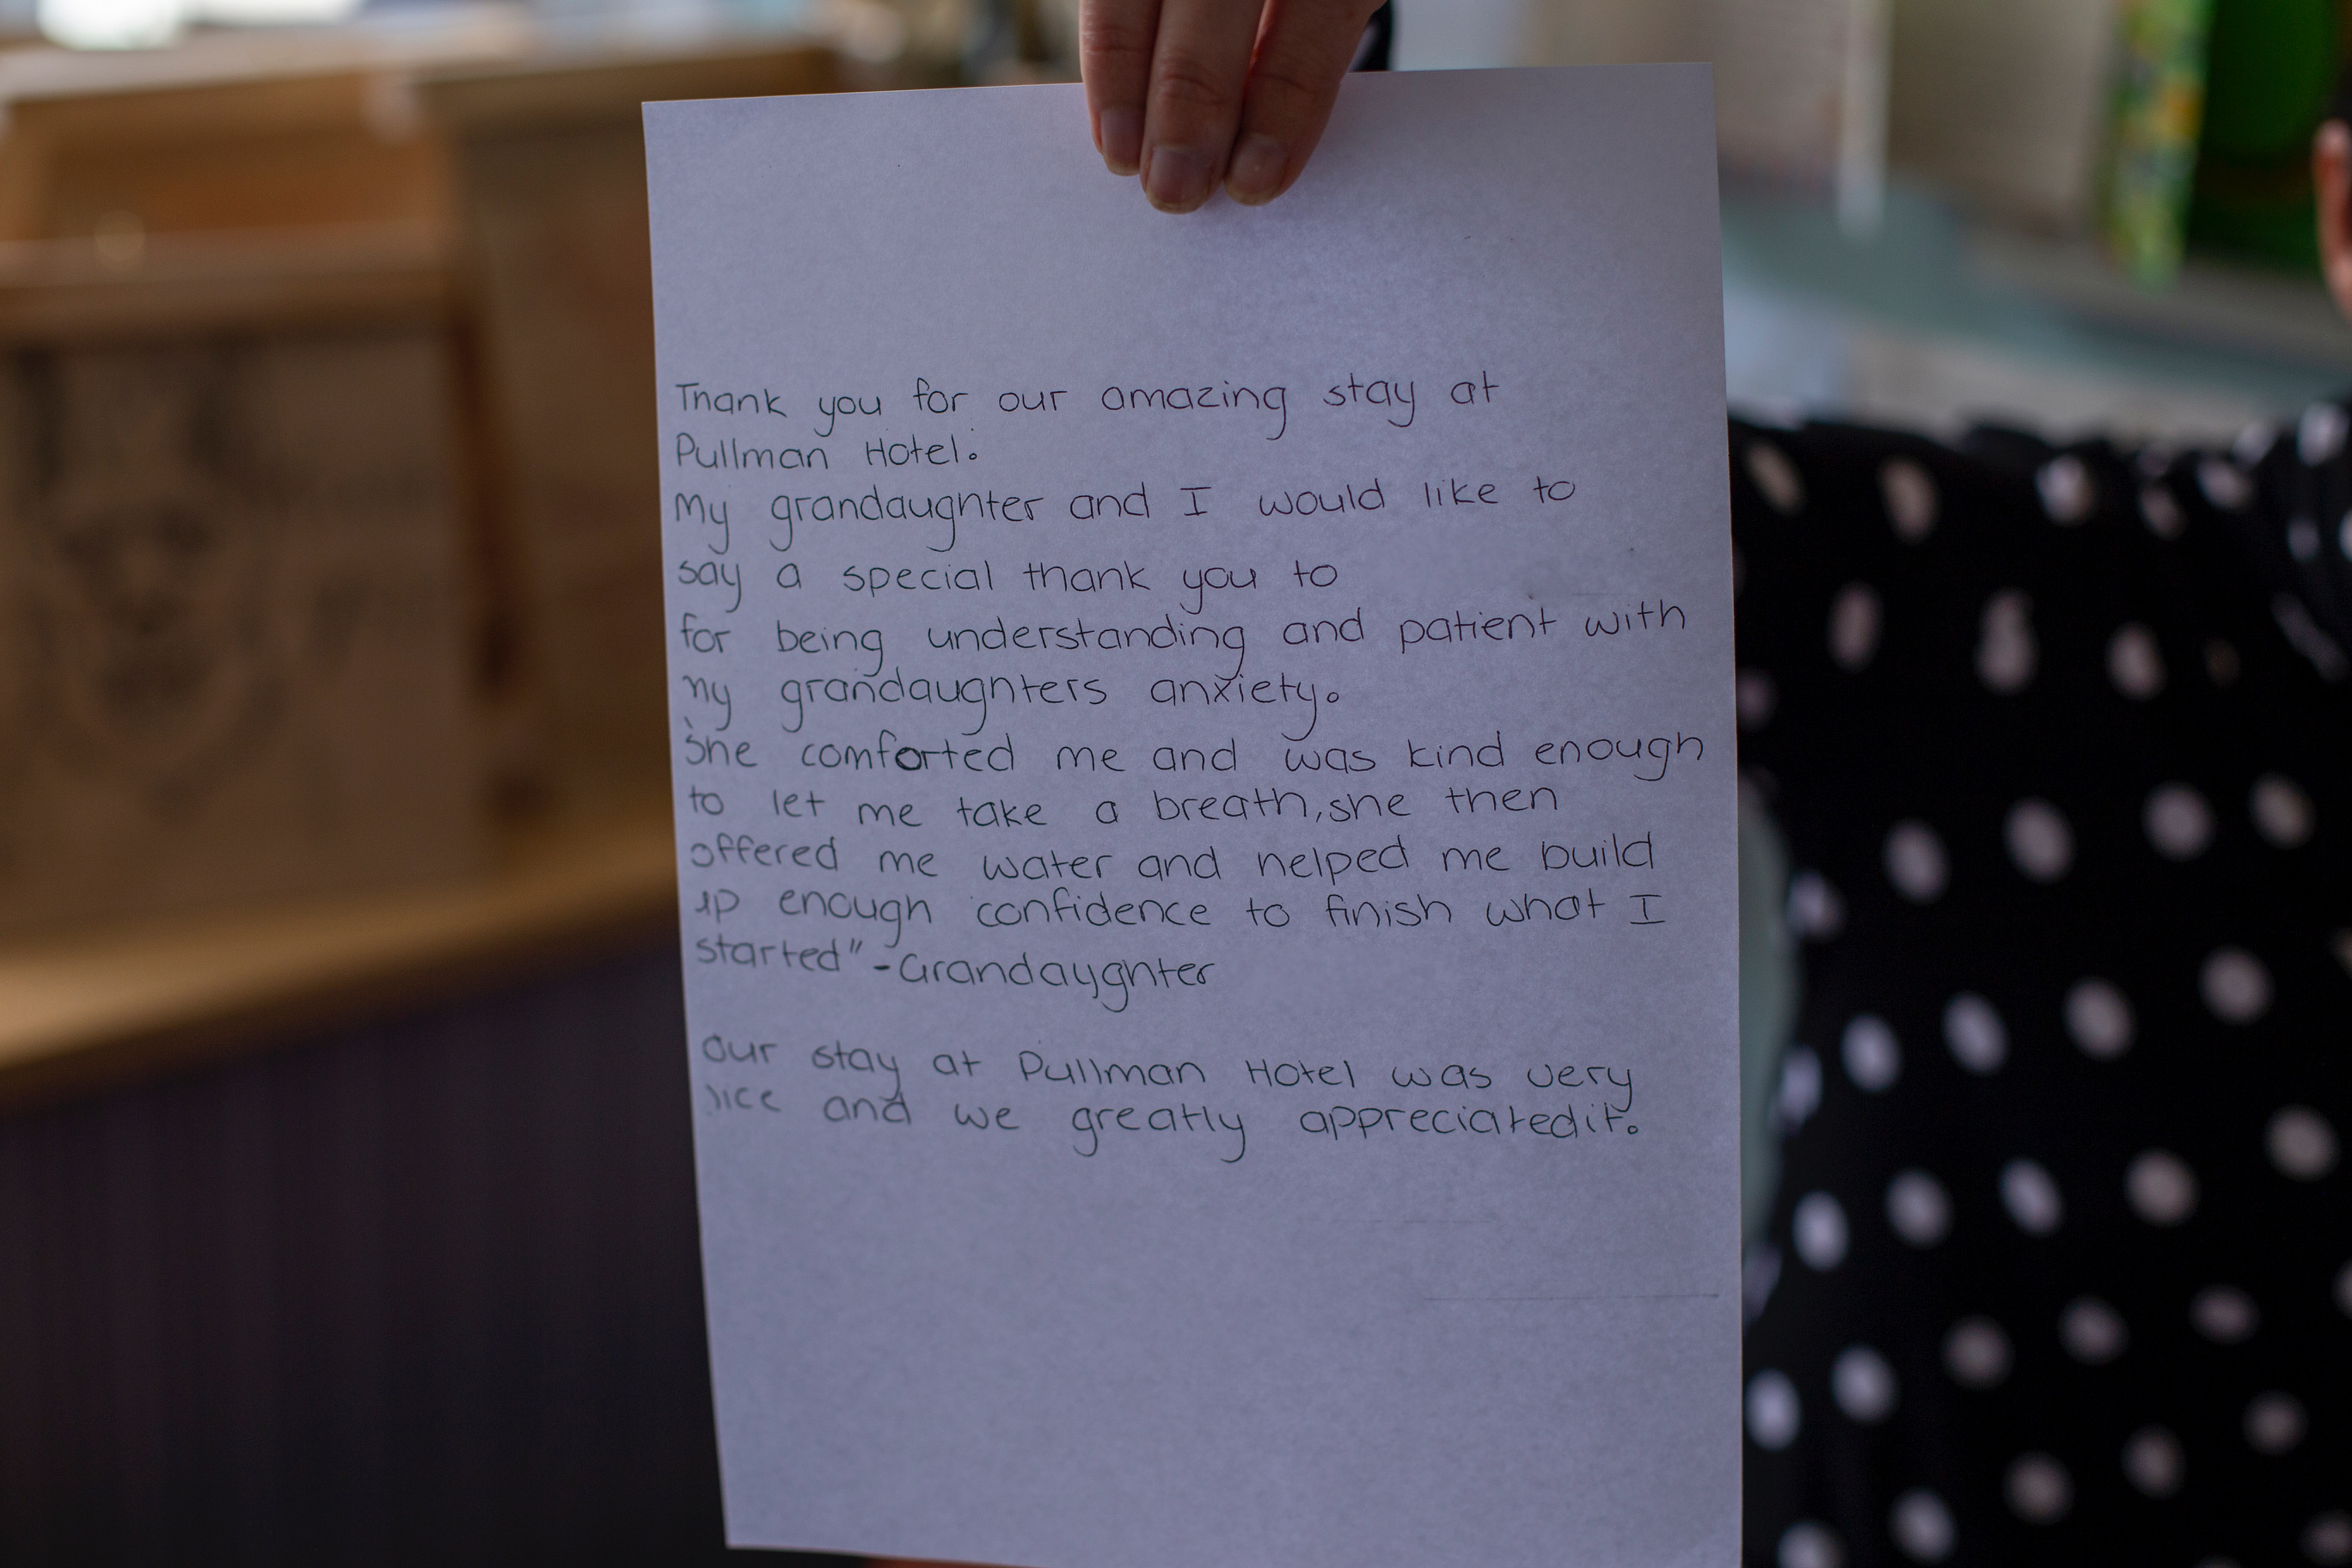 Thank you for our amazing stay at
Pullman Hotel.
My grandaughter and I would like to
say a special thank you to
for being understanding and patient with
my grandaughters anxiety.
"She comforted me and was kind enough
to let me take a breath, she then
offered me water and helped me build
up enough confidence to finish what I
started" - Grandayghter
Our stay at Pullman Hotel was very
nice and we greatly appreciated it.